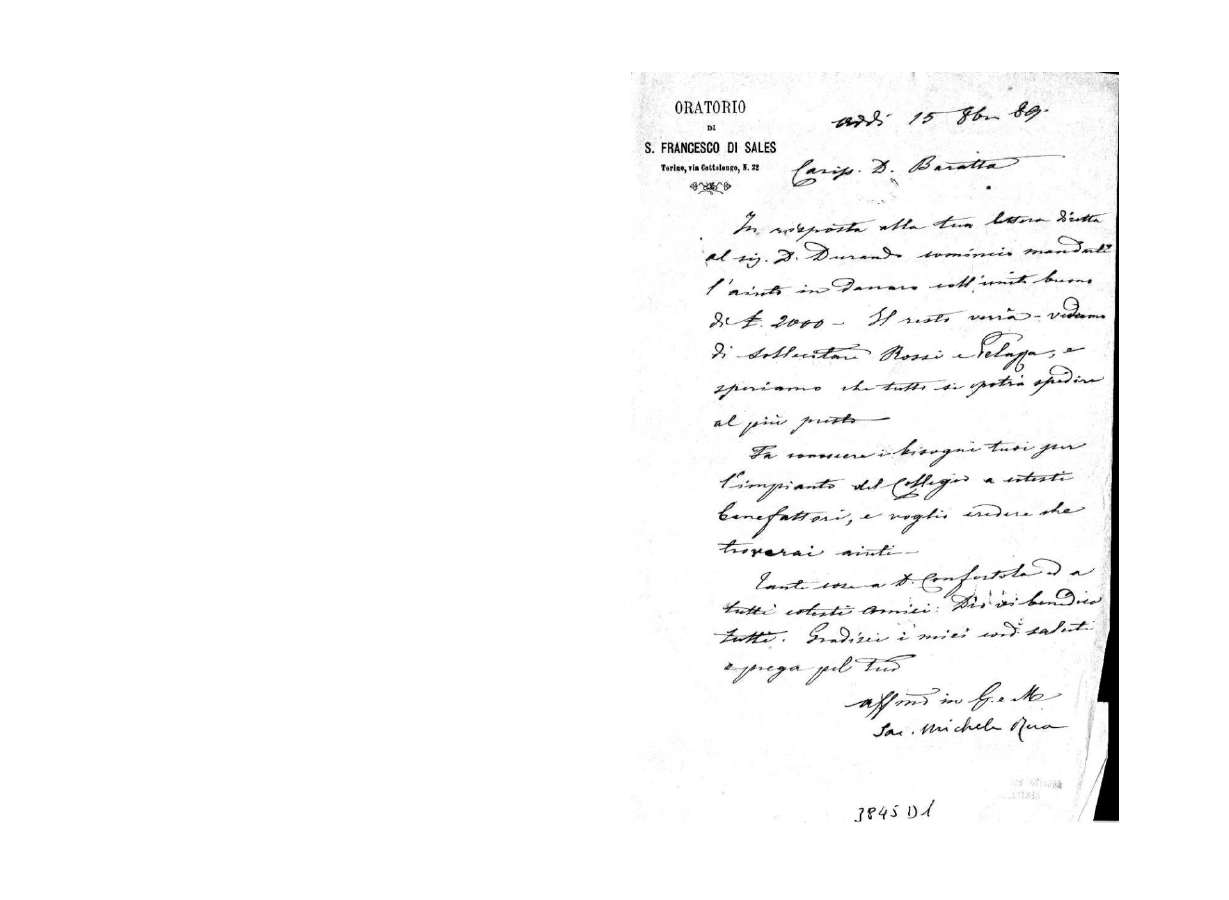 ORATORIO
DI
S. FRANCESCO DI SALES
Torino, via Cottolengo, N. 32
addì 15 8bre 89.
Cariss. D. Baratta
In risposta alla tua lettera diretta
al sig. D. Durando comincio mandarti
l'aiuto in danaro coll'unito buono
di £. 2000 - Il resto verrà - vedremo
di sollecitare Rossi e Pelazza, e
speriamo che tutto si potrà spedire
al più presto
Fa conoscere i bisogni tuoi per
l'impianto del Collegio a cotesti
benefattori, e voglio credere che
troverai aiuti -
Tante cose a D. Confortola ed a
tutti cotesti amici: Dio vi benedica
tutti. Gradisci i miei cord. saluti
e prega pel tuo
affmo in G. e M.
Sac. Michele Rua
3845 D1